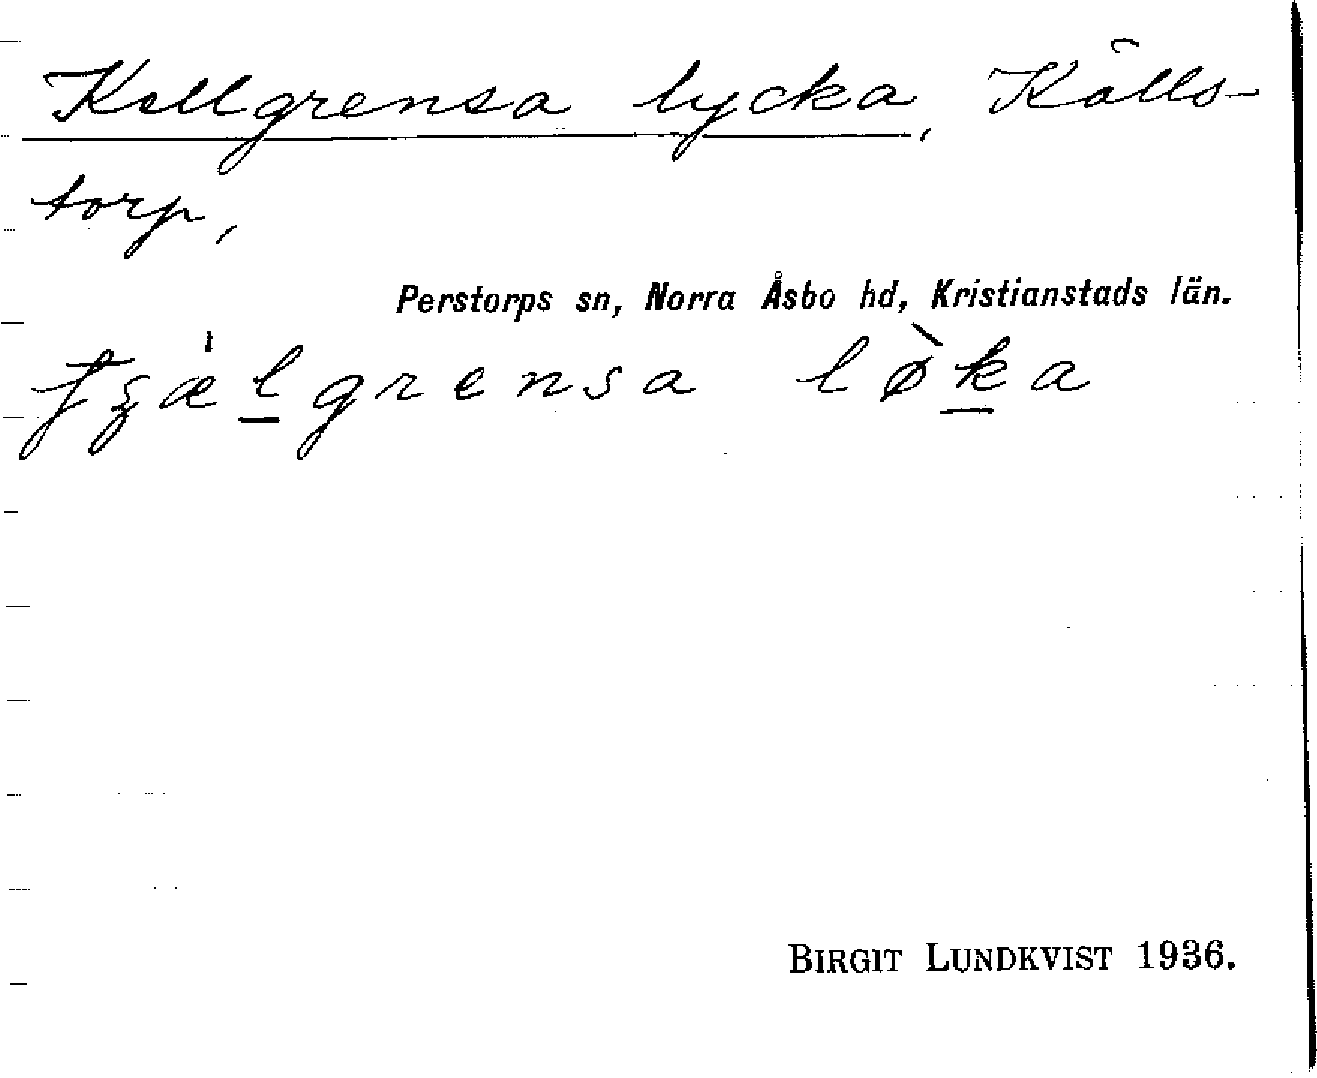 Kellgrensa lycka, Källs-
torp,
Perstorps sn, Norra Åsbo hd, Kristianstads län.
løka
BIRGIT LUNDKVIST 1936.